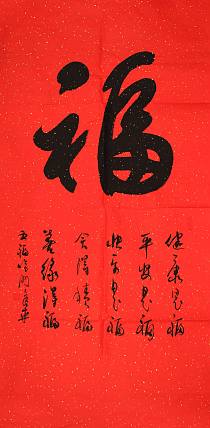 福
健康是福
平安是福
是福
舍得福
善缘得福
五福临门